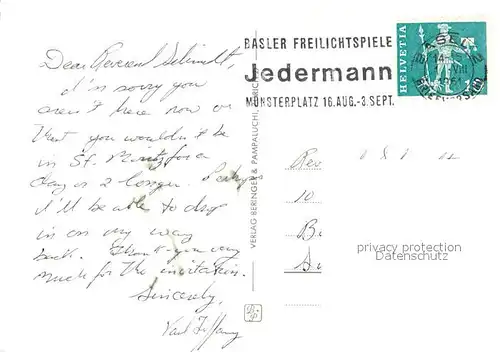 Dear Reverend Schmidt,
I'm sorry you
aren't here now or
that you wouldn't be
in St. Moritz for a
day or 2 longer. Perhaps
I'll be able to drop
in on my way
back. Thank-you very
much for the invitation.
Sincerely,
BASLER FREILICHTSPIELE
Jedermann
MÜNSTERPLATZ 16.AUG.-3.SEPT.
HELVETIA
BASEL 2
VIII
VERLAG BERINGER & PAMPALUCHI, ZÜRICH
Rev
10
privacy protection
Datenschutz